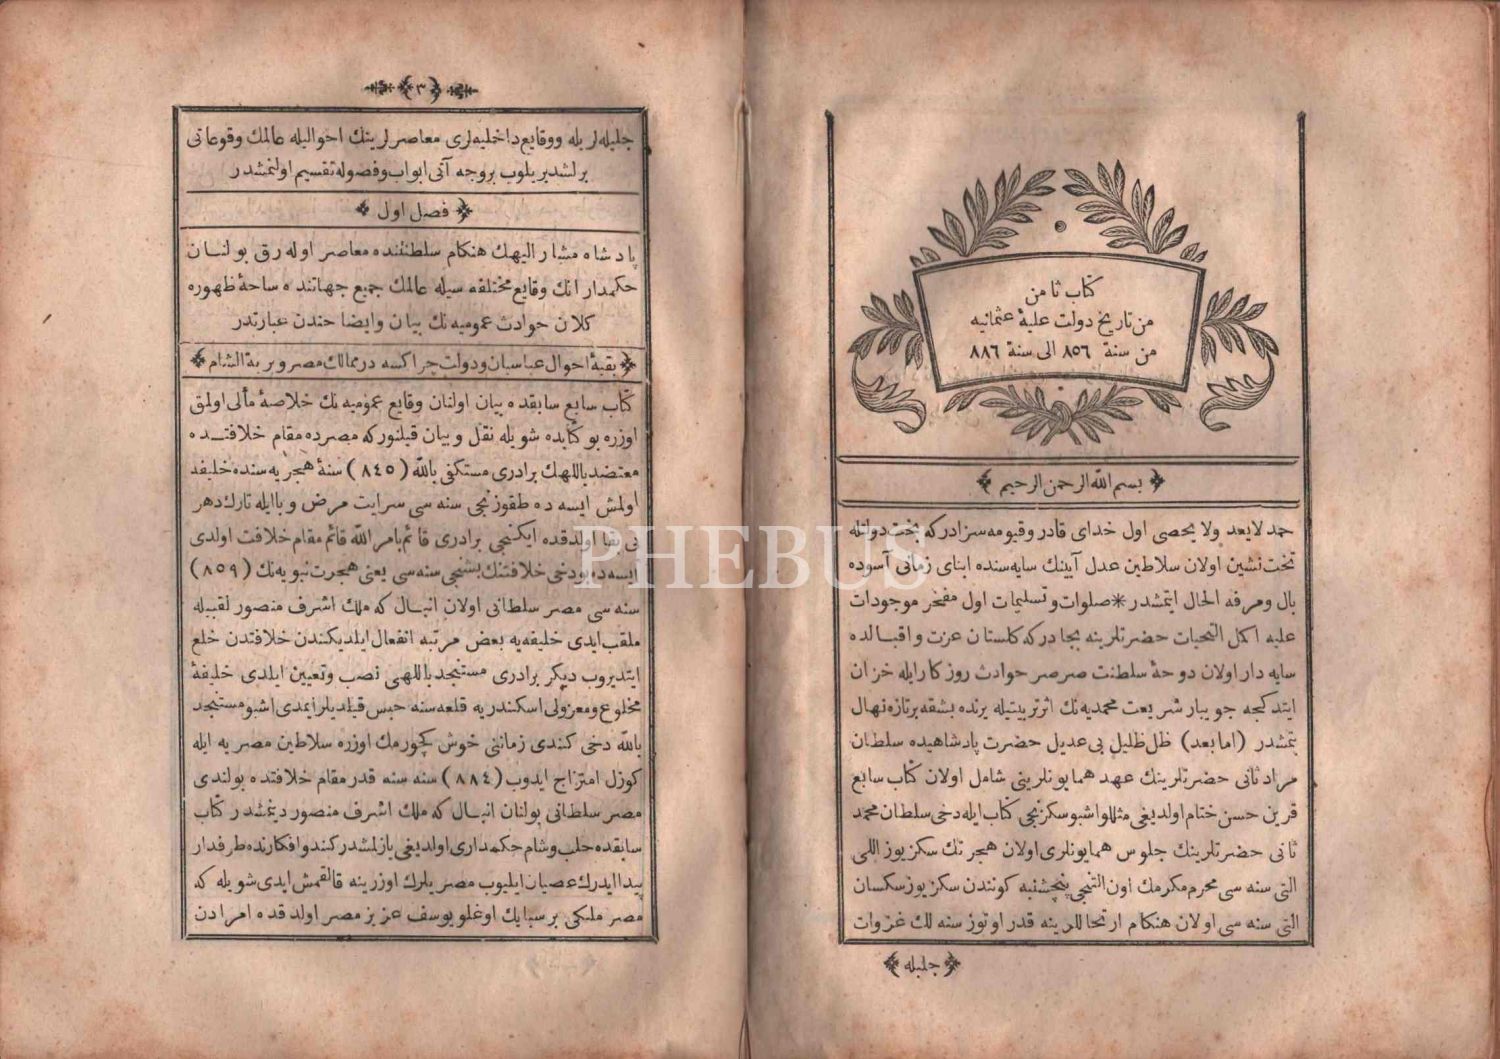 كتاب ثامن
من تاريخ دولت علیهٔ عثمانیه
من سنة ٨٥٦ الى سنة ٨٨٦
بسم الله الرحمن الرحيم
حمد لايعد ولا يحصى اول خداى قادر و قيومه سزادركه بخت دولتله
تخت نشين اولان سلاطين عدل آيينك سايه سنده ابناى زمانى آسوده
بال ومرفه الحال ايتمشدر * صلوات وتسليمات اول مفخر موجودات
عليه اكمل التحيات حضرتلرينه بجادركه كلستان عزت و اقبالده
سايه دار اولان دوحهٔ سلطنت صرصر حوادث روزكار ايله خزان
ايتدكجه جويبار شريعت محمديه نك اثر تربيتيله يرنده بشقه بر تازه نهال
يتمشدر (امابعد) ظل ظليل بى عديل حضرت پادشاهيده سلطان
مراد ثانى حضرتلرينك عهد همايونلرينى شامل اولان كتاب سابع
قرين حسن ختام اولديغى مثللو اشبو سكزنجى كتاب ايله دخى سلطان محمد
ثانى حضرتلرينك جلوس همايونلرى اولان هجرتك سكز يوز اللى
التى سنه سى محرم مكرمك اون التنجى پنچشنبه كونندن سكز يوز سكسان
التى سنه سى اولان هنكام ارتحاللرينه قدر اوتوز سنه لك غزوات
جليله
٣
جليله لريله ووقايع داخليه لرى معاصرلرينك احواليله عالمك وقوعاتى
برلشديريلوب بروجه آتى ابواب وفصوله تقسيم اولنمشدر
فصل اول
پادشاه مشار اليهك هنكام سلطنتنده معاصر اوله رق بولنان
حكمدارانك وقايع مختلفه سيله عالمك جميع جهاتنده ساحهٔ ظهوره
كلان حوادث عموميه نك بيان وايضاحندن عبارتدر
بقيهٔ احوال عباسيان ودولت چراكسه در ممالك مصر وبرية الشام
كتاب سابع سابقده بيان اولنان وقايع عموميه نك خلاصهٔ مألى اولمق
اوزره بو كتابده شويله نقل و بيان قيلنوركه مصرده مقام خلافتده
معتضد باللهك برادرى مستكفى بالله (٨٤٥) سنهٔ هجريه سنده خليفه
اولمش ايسه ده طقوزنجى سنه سى سرايت مرض وبا ايله تارك دهر
بى بقا اولدقده ايكنجى برادرى قائم بامر الله قائم مقام خلافت اولدى
ايسه ده بو دخى خلافتنك بشنجى سنه سى يعنى هجرت نبويه نك (٨٥٩)
سنه سى مصر سلطانى اولان اينال كه ملك اشرف منصور لقبيله
ملقب ايدى خليفه يه بعض مرتبه انفعال ايلديكندن خلافتدن خلع
ايتديروب ديكر برادرى مستنجد باللهى نصب وتعيين ايلدى خليفهٔ
مخلوع ومعزولى اسكندريه قلعه سنه حبس قيلديلر ايمدى اشبو مستنجد
بالله دخى كندى زماننى خوش كچورمك اوزره سلاطين مصريه ايله
كوزل امتزاج ايدوب (٨٨٤) سنه سنه قدر مقام خلافتده بولندى
مصر سلطانى بولنان اينال كه ملك اشرف منصور دينمشدر كتاب
سابقده حلب وشام حكمدارى اولديغى يازلمشدر كندو افكارنده طرفدار
پيدا ايدرك عصيان ايليوب مصريلرك اوزرينه قالقمش ايدى شويله كه
مصر ملكى برسبايك اوغلو يوسف عزيز مصر اولدقده امرادن